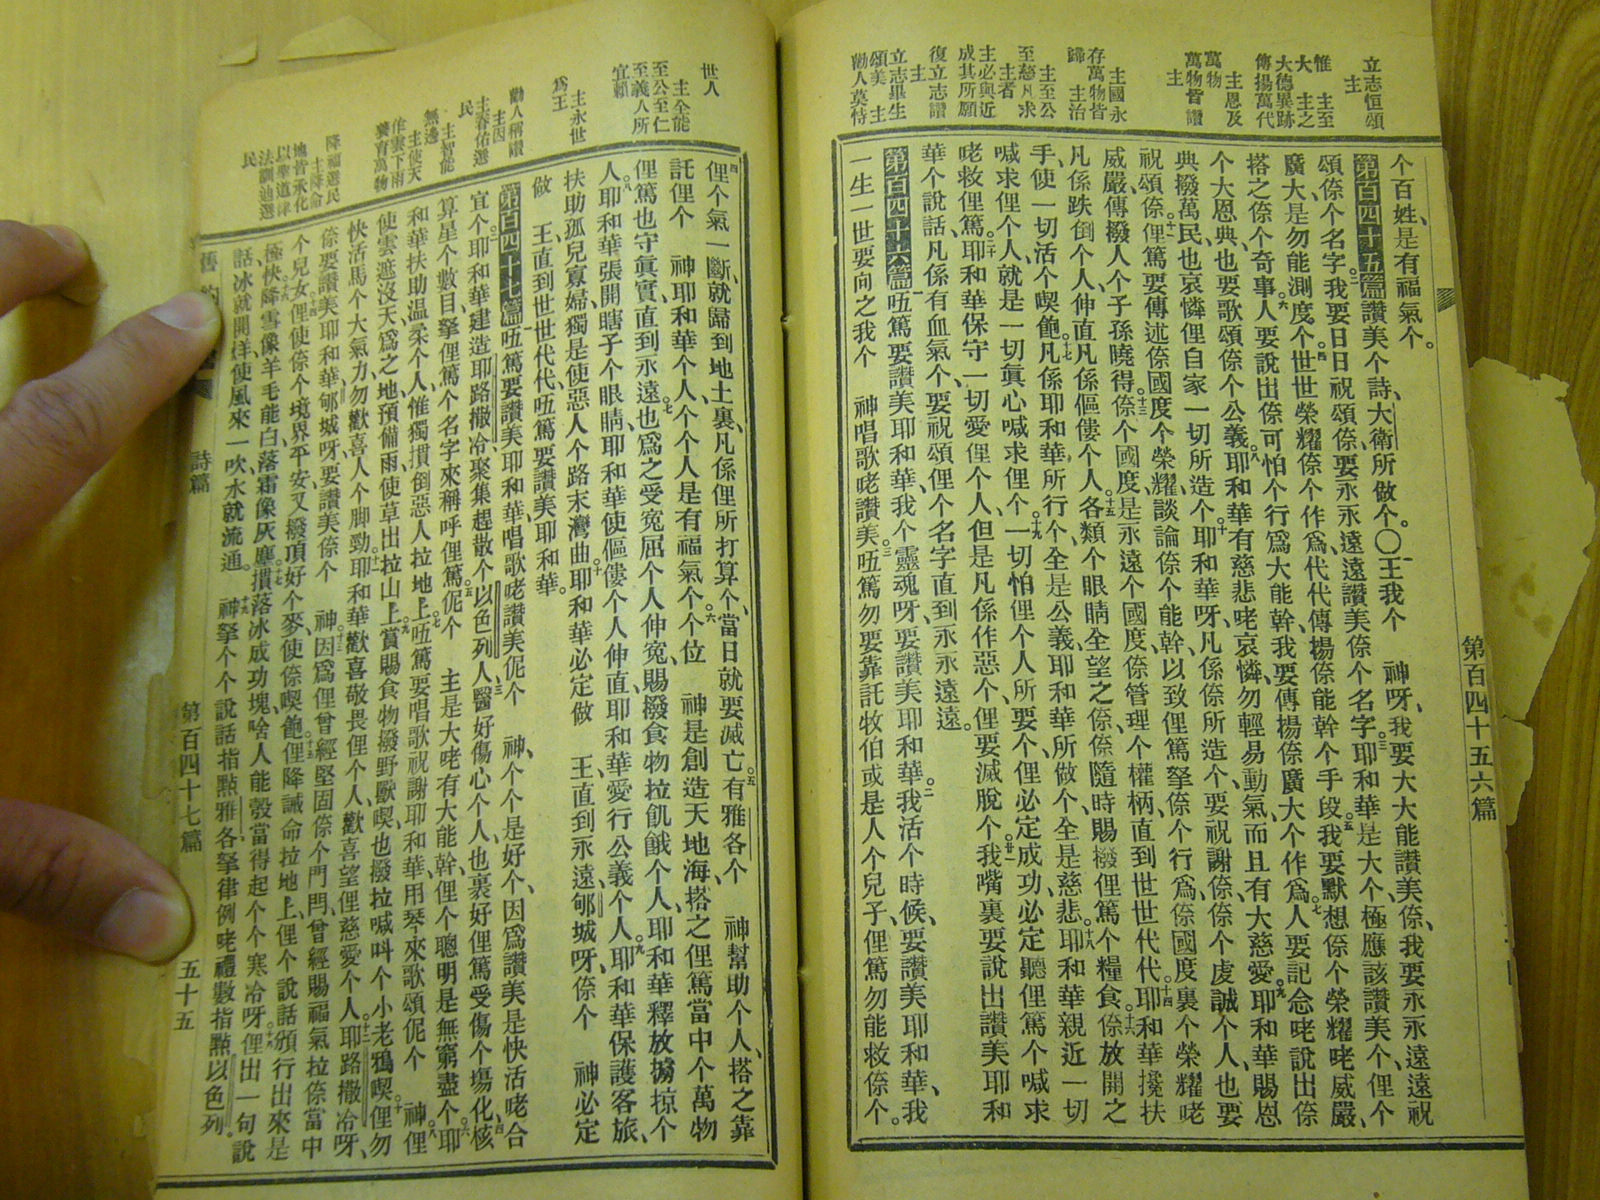 立志恒頌
主
惟主至
大主之
大德異跡
傳揚萬代
主恩及
萬物
萬物皆讚
主
主國永
存萬物皆
歸主治
主至公
至慈凡求
主者
主必與近
成其所願
復立志讚
主
立志畢生
頌美主
勸人莫恃
个百姓、是有福氣个。
第百四十五篇讚美个詩、大衛所做个。〇一王我个　神呀、我要大大能讚美㑚、我要永永遠遠祝
頌㑚个名字、二我要日日祝頌㑚、要永永遠遠讚美㑚个名字、三耶和華是大个、極應該讚美个、俚个
廣大、是勿能測度个、四世世榮耀㑚个作爲、代代傳揚㑚能幹个手段、五我要默想㑚个榮耀咾威嚴、
搭之㑚个奇事、六人要說出㑚可怕个行爲大能幹、我要傳揚㑚廣大个作爲、七人要記念咾說出㑚
个大恩典、也要歌頌㑚个公義、八耶和華有慈悲咾哀憐、勿輕易動氣、而且有大慈愛、九耶和華賜恩
典撥萬民、也哀憐俚自家一切所造个、十耶和華呀、凡係㑚所造个、要祝謝㑚、㑚个虔誠个人、也要
祝頌㑚、十一俚篤要傳述㑚國度个榮耀、談論㑚个能幹、以致俚篤拏㑚个行爲、㑚國度裏个榮耀咾
威嚴、傳撥人个子孫曉得、十三㑚个國度、是永遠个國度、㑚管理个權柄、直到世世代代、十四耶和華攙扶
凡係跌倒个人、伸直凡係傴僂个人、十五各類个眼睛全望之㑚、㑚隨時賜撥俚篤个糧食、十六㑚放開之
手、使一切活个喫飽、十七凡係耶和華所行个、全是公義、耶和華所做个、全是慈悲、十八耶和華親近一切
喊求俚个人、就是一切眞心喊求俚个、十九一切怕俚个人所要个、俚必定成功、必定聽俚篤个喊求
咾救俚篤、二十耶和華保守一切愛俚个人、但是凡係作惡个、俚要滅脫个、廿一我嘴裏要說出讚美耶和
華个說話、凡係有血氣个、要祝頌俚个名字、直到永永遠遠。
第百四十六篇一㕶篤要讚美耶和華、我个靈魂呀、要讚美耶和華、二我活个時候、要讚美耶和華、我
一生一世要向之我个　神唱歌咾讚美、三㕶篤勿要靠託牧伯、或是人个兒子、俚篤勿能救㑚个。
第百四十五六篇
世人
主全能
至公至仁
至義人所
宜賴
主永世
爲王
勸人稱讚
主因
主眷佑選
民
主智能
無邊
主使天
作雲下雨
養育萬物
降福選民
主降命
地皆承化
以聖道律
法訓迪選
民
四俚个氣一斷、就歸到地土裏、凡係俚所打算个、當日就要滅亡、五有雅各个　神幫助个人、搭之靠
託俚个　神耶和華个人、个个人是有福氣个、六个位　神是創造天地海、搭之俚篤當中个萬物
俚篤也守眞實、直到永遠、七也爲之受寃屈个人伸寃、賜撥食物拉飢餓个人、耶和華釋放擄掠个
人、八耶和華張開瞎子个眼睛、耶和華使傴僂个人伸直、耶和華愛行公義个人、九耶和華保護客旅、
扶助孤兒寡婦、獨是使惡人个路末灣曲、十耶和華必定做　王、直到永遠、郇城呀、㑚个　神必定
做　王、直到世世代代、㕶篤要讚美耶和華。
第百四十七篇一㕶篤要讚美耶和華、唱歌咾讚美伲个　神、个个是好个、因爲讚美是快活咾合
宜个、二耶和華建造耶路撒冷、聚集趕散个以色列人、三醫好傷心个人、也裏好俚篤受傷个塲化、四核
算星个數目、拏俚篤个名字來稱呼俚篤、五伲个　主是大咾有大能幹、俚个聰明是無窮盡个、六耶
和華扶助温柔个人、惟獨摜倒惡人拉地上、七㕶篤要唱歌祝謝耶和華、用琴來歌頌伲个　神、八俚
使雲遮沒天、爲之地預備雨、使草出拉山上、九賞賜食物撥野獸喫、也撥拉喊呌个小老鴉喫、十俚勿
快活馬个大氣力、勿歡喜人个脚勁、十一耶和華歡喜敬畏俚个人、歡喜望俚慈愛个人、十二耶路撒冷呀、
㑚要讚美耶和華、郇城呀、要讚美㑚个　神、十三因爲俚曾經堅固㑚个門閂、曾經賜福氣拉㑚當中
个兒女、十四俚使㑚个境界平安、又撥頂好个麥、使㑚喫飽、十五俚降誡命拉地上、俚个說話頒行出來是
極快、十六降雪像羊毛能白、落霜像灰塵、十七摜落冰成功塊、啥人能彀當得起个个寒冷呀、十八俚出一句說
話、冰就開烊、使風來一吹、水就流通。十九　神拏个个說話指點雅各、拏律例咾禮數指點以色列。
舊約
詩篇
第百四十七篇
五十五